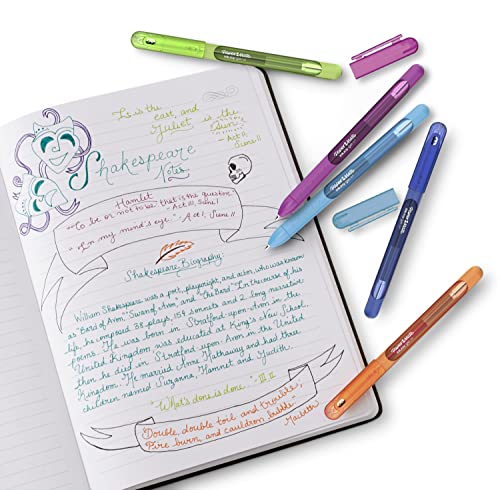 "Tis is the
east, and
Juliet is the
Sun"
- Act II,
Scene II
Shakespeare
Notes
Hamlet
"To be or not to be: that is the question"
- Act III, Scene I
"In my mind's eye." - Act I, Scene II
Shakespeare Biography
William Shakespeare was a poet, playwright, and actor, who was known
as "Bard of Avon," "Swan of Avon, and "the Bard". In the course of his
life, he composed 38 plays, 154 sonnets and 2 long narrative
poems. He was born in Stratford-upon-Avon in the
United Kingdom, was educated at King's New School,
then he died in Stratford-upon-Avon in the United
Kingdom. He married Anne Hathaway and had three
children named Suzanna, Hamnet and Judith.
"What's done is done." - III.II
"Double, double toil and trouble,
Fire burn, and cauldron bubble."
Macbeth
Paper Mate
Paper Mate
Paper Mate
Paper Mate
Paper Mate